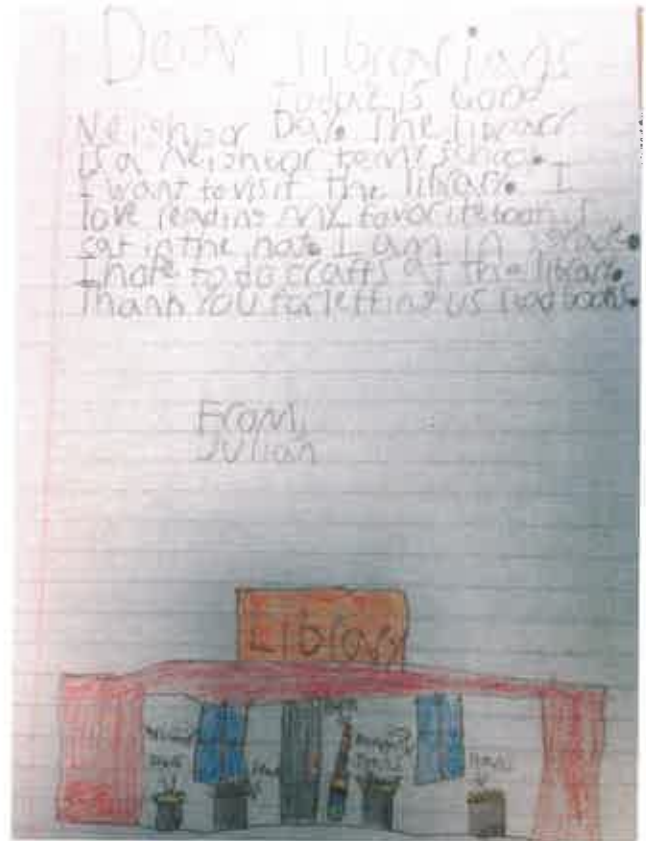 Dear librarians
Today is Good
Neighbor Day. The library
is a neighbor to my school.
I want to visit the library. I
love reading my favorite book is
cat in the hat. I am in
I hope to do crafts at the library.
Thank you for letting us read books.
From,
Julian
Library